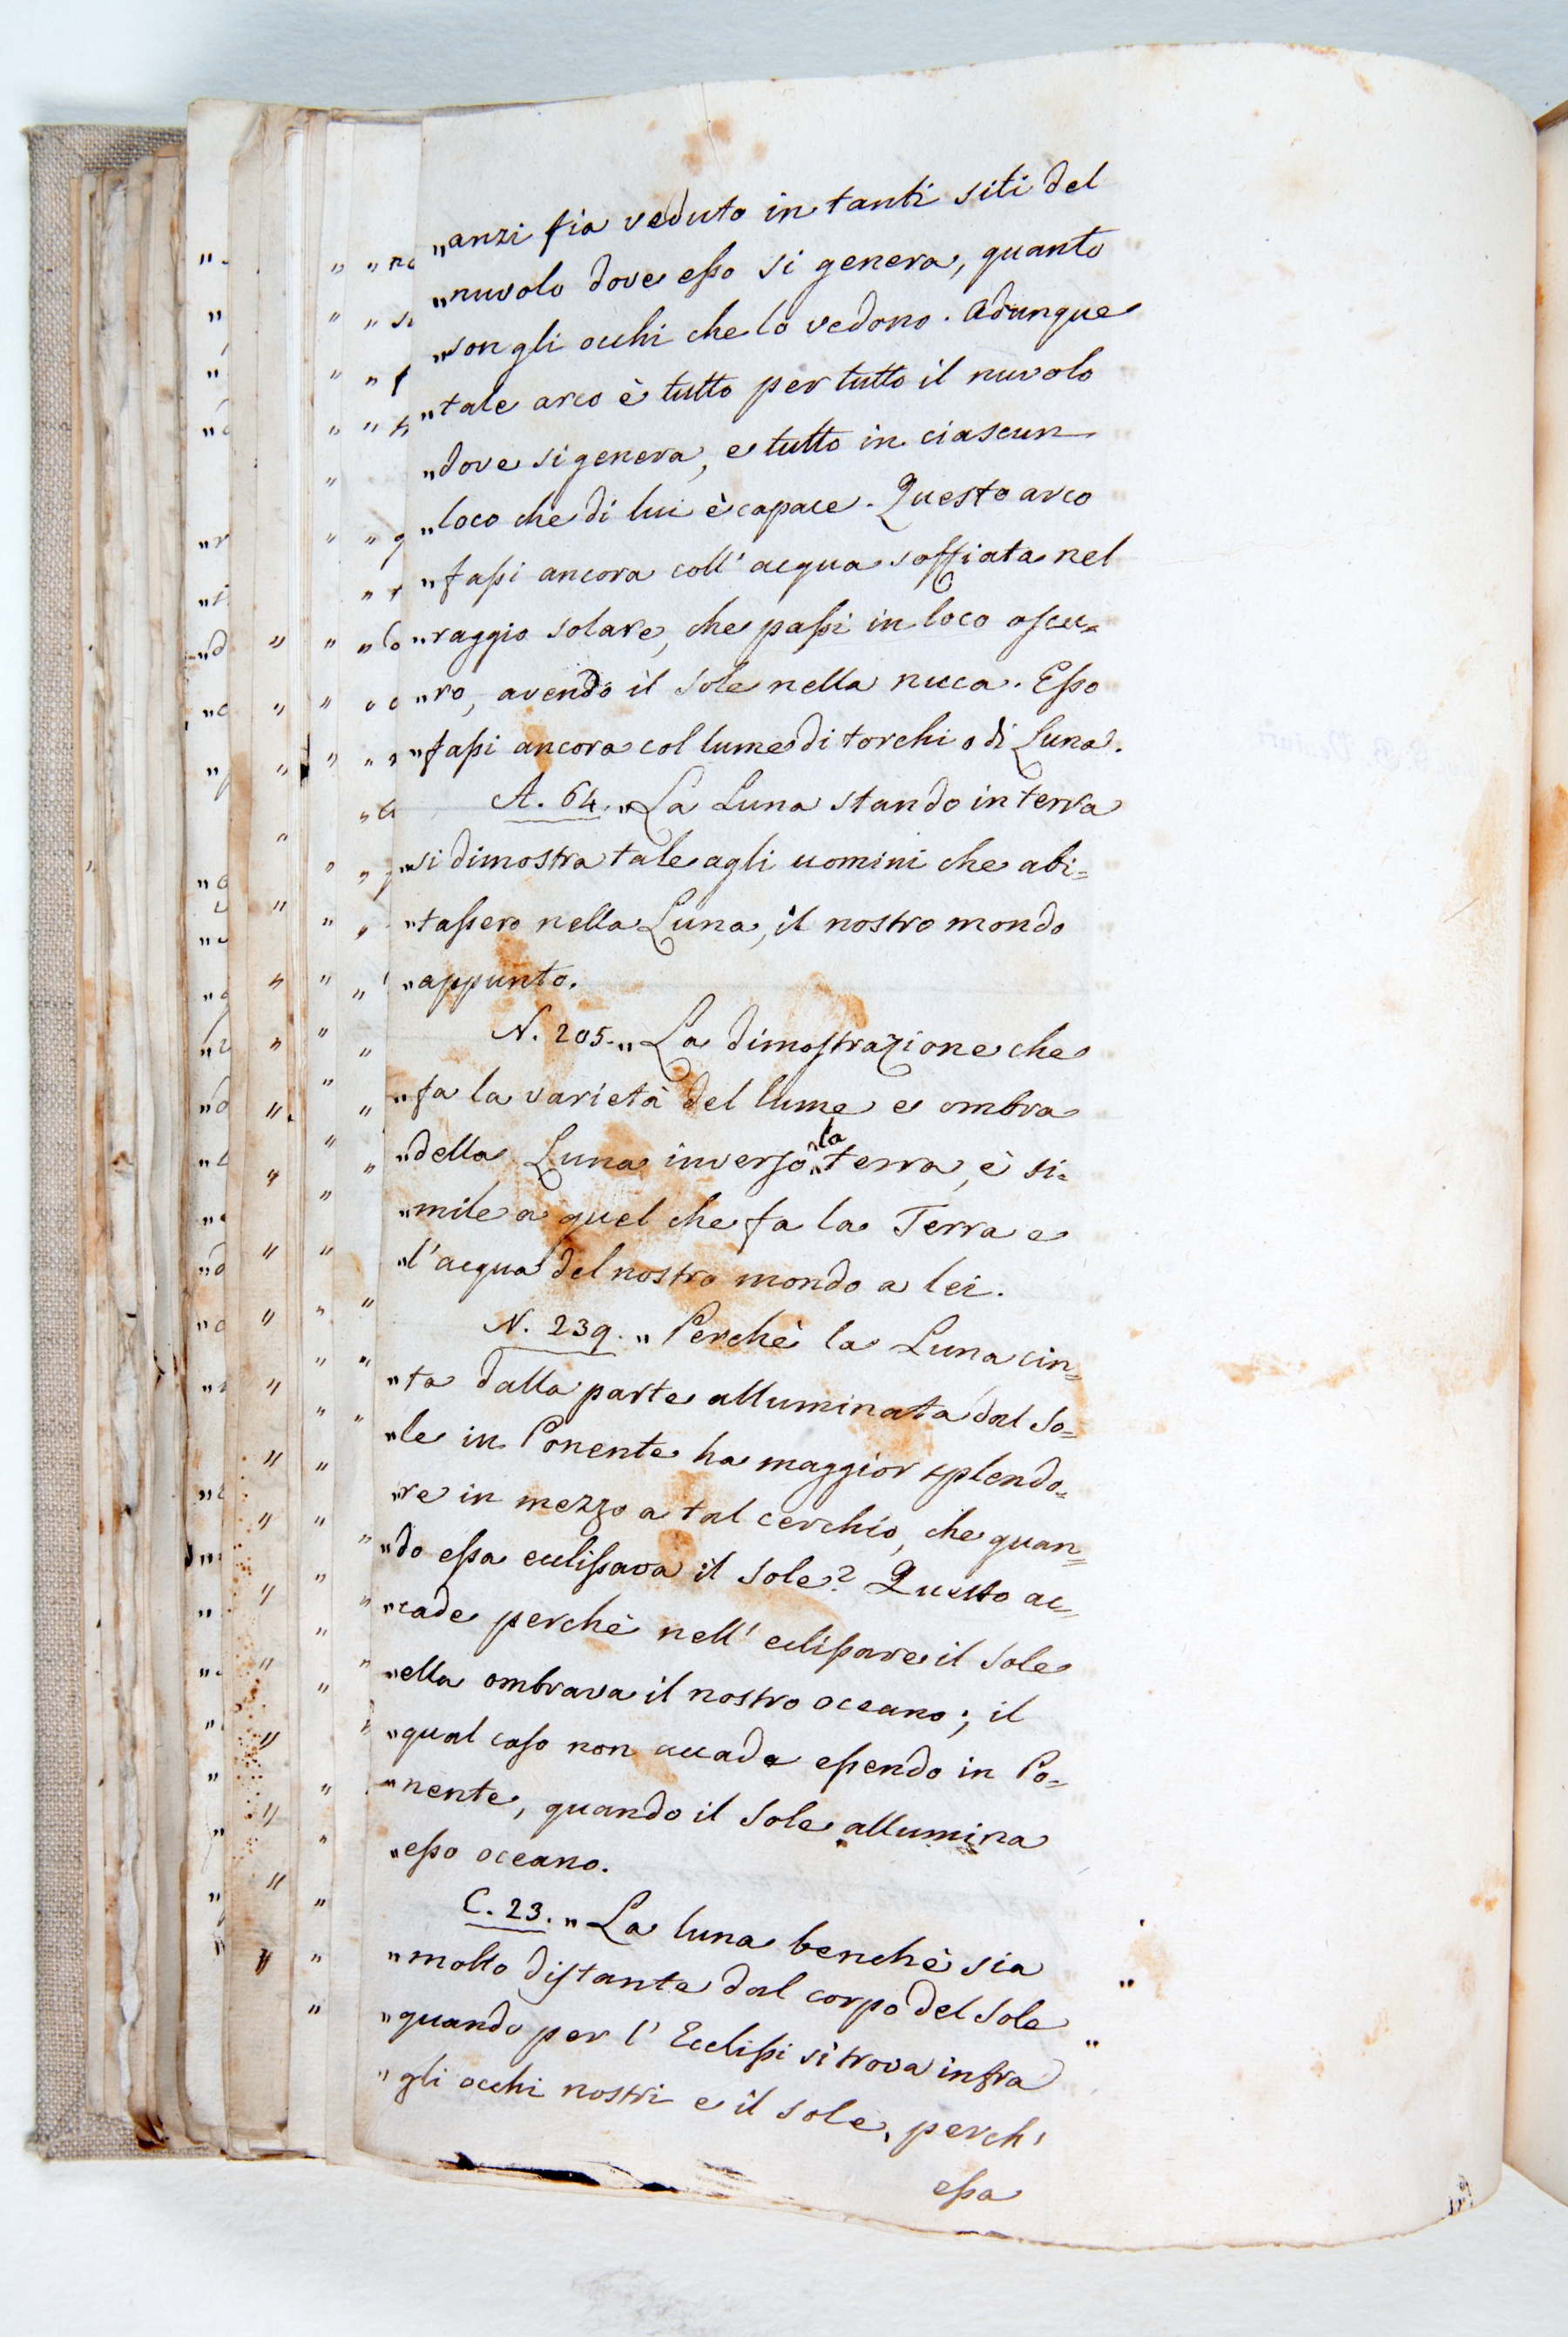 „anzi fia veduto in tanti siti del
„nuvolo dove eſso si genera, quanto
„son gli occhi che lo vedono. Adunque
„tale arco è tutto per tutto il nuvolo
„dove si genera, e tutto in ciascun
„loco che di lui è capace. Questo arco
„faſsi ancora coll' acqua soffiata nel
„raggio solare, che paſsi in loco oſcu=
„ro, avendo il Sole nella nucca. Eſso
„faſsi ancora col lume di torchi o di Luna.
A. 64. „La Luna stando in terra
„si dimostra tale agli uomini che abi=
„taſsero nella Luna, il nostro mondo
„appunto.
N. 205. „La dimoſtrazione che
„fa la varietà del lume e ombra
„della Luna inverſo la terra, è si=
„mile a quel che fa la Terra e
„l'acqua del nostro mondo a lei.
N. 239. „Perchè la Luna cin=
„ta dalla parte alluminata dal So=
„le in Ponente ha maggior splendo=
„re in mezzo a tal cerchio, che quan=
„do eſsa eccliſsava il Sole? Questo ac=
„cade perchè nell' ecliſsare il Sole
„ella ombrava il nostro oceano; il
„qual caſo non accade eſsendo in Po=
„nente, quando il Sole allumina
„eſso oceano.
C. 23. „La luna benchè sia
„molto diſtante dal corpo del Sole
„quando per l' Eccliſsi si trova infra
„gli occhi nostri e il Sole, perch'
eſsa